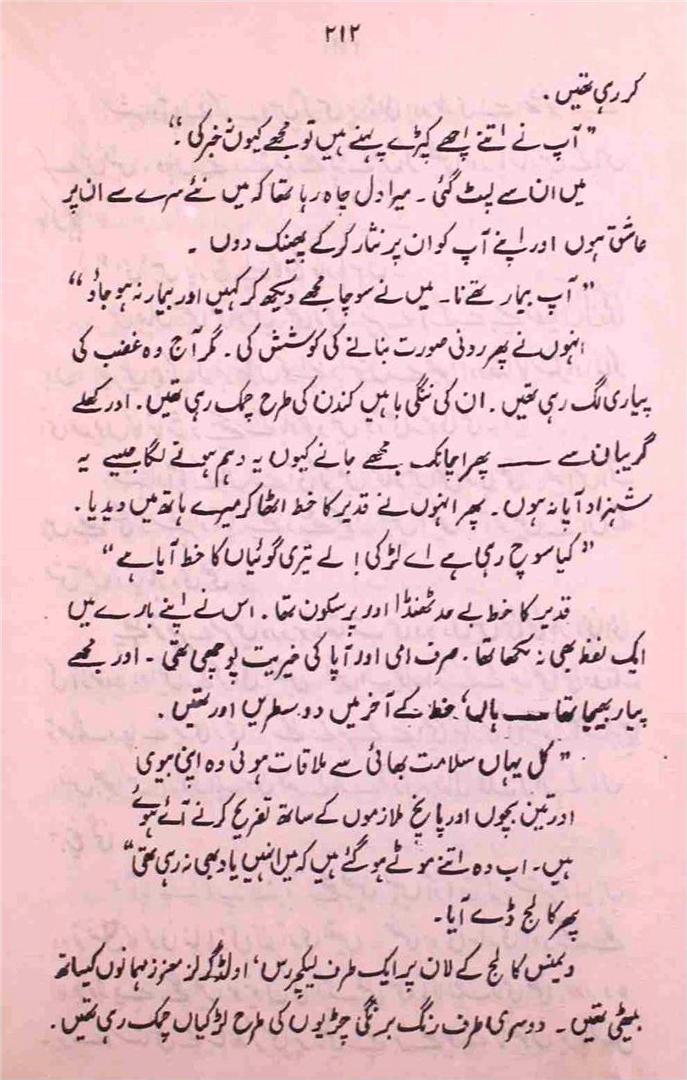 ۲۱۲
کر رہی تھیں.
"آپ نے اتنے اچھے کپڑے پہنے ہیں تو مجھے کیوں نہ خبر کی؟"
میں ان سے لپٹ گئی۔ میرا دل چاہ رہا تھا کہ میں نئے سرے سے ان پر
عاشق ہوں اور اپنے آپ کو ان پر نثار کر کے پھینک دوں۔
"آپ بیمار تھے نا۔ میں نے سوچا مجھے دیکھ کر کہیں اور بیمار نہ ہو جاؤ"
انہوں نے پھر رونی صورت بنانے کی کوشش کی۔ مگر آج وہ غضب کی
پیاری لگ رہی تھیں. ان کی ننگی باہیں کندن کی طرح چمک رہی تھیں. اور کھلے
گریبان سے —— پھر اچانک مجھے جانے کیوں یہ وہم ہونے لگا جیسے یہ
شہزاد آپا نہ ہوں۔ پھر انہوں نے قدیر کا خط اٹھا کر میرے ہاتھ میں دیدیا.
"کیا سوچ رہی ہے اے لڑکی! لے تیری گوئیاں کا خط آیا ہے"
قدیر کا خط بے حد ٹھنڈا اور پر سکون تھا. اس نے اپنے بارے میں
ایک لفظ بھی نہ لکھا تھا. صرف امی اور آپا کی خیریت پوچھی تھی۔ اور مجھے
پیار بھیجا تھا —— ہاں' خط کے آخر میں دو سطریں اور تھیں.
"کل یہاں سلامت بھائی سے ملاقات ہوئی وہ اپنی بیوی
اور تین بچوں اور پانچ ملازموں کے ساتھ تفریح کرنے آئے ہوئے
ہیں۔ اب وہ اتنے موٹے ہو گئے ہیں کہ میں انہیں یاد بھی نہ رہی تھی"
پھر کالج ڈے آیا۔
ویمنس کالج کے لان پر ایک طرف لیکچررس' اولڈ گرلز معزز مہمانوں کیساتھ
بیٹھی تھیں۔ دوسری طرف رنگ برنگی چڑیوں کی طرح لڑکیاں چمک رہی تھیں.